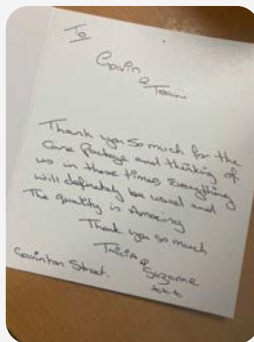 To
Gavin
&
Team
Thank you so much for the
Care package and thinking of
us in these times Everything
will definitely be used and
The quality is Amazing
Thank you so much
Tricia &
Suzanne
Covinton Street.
xxx